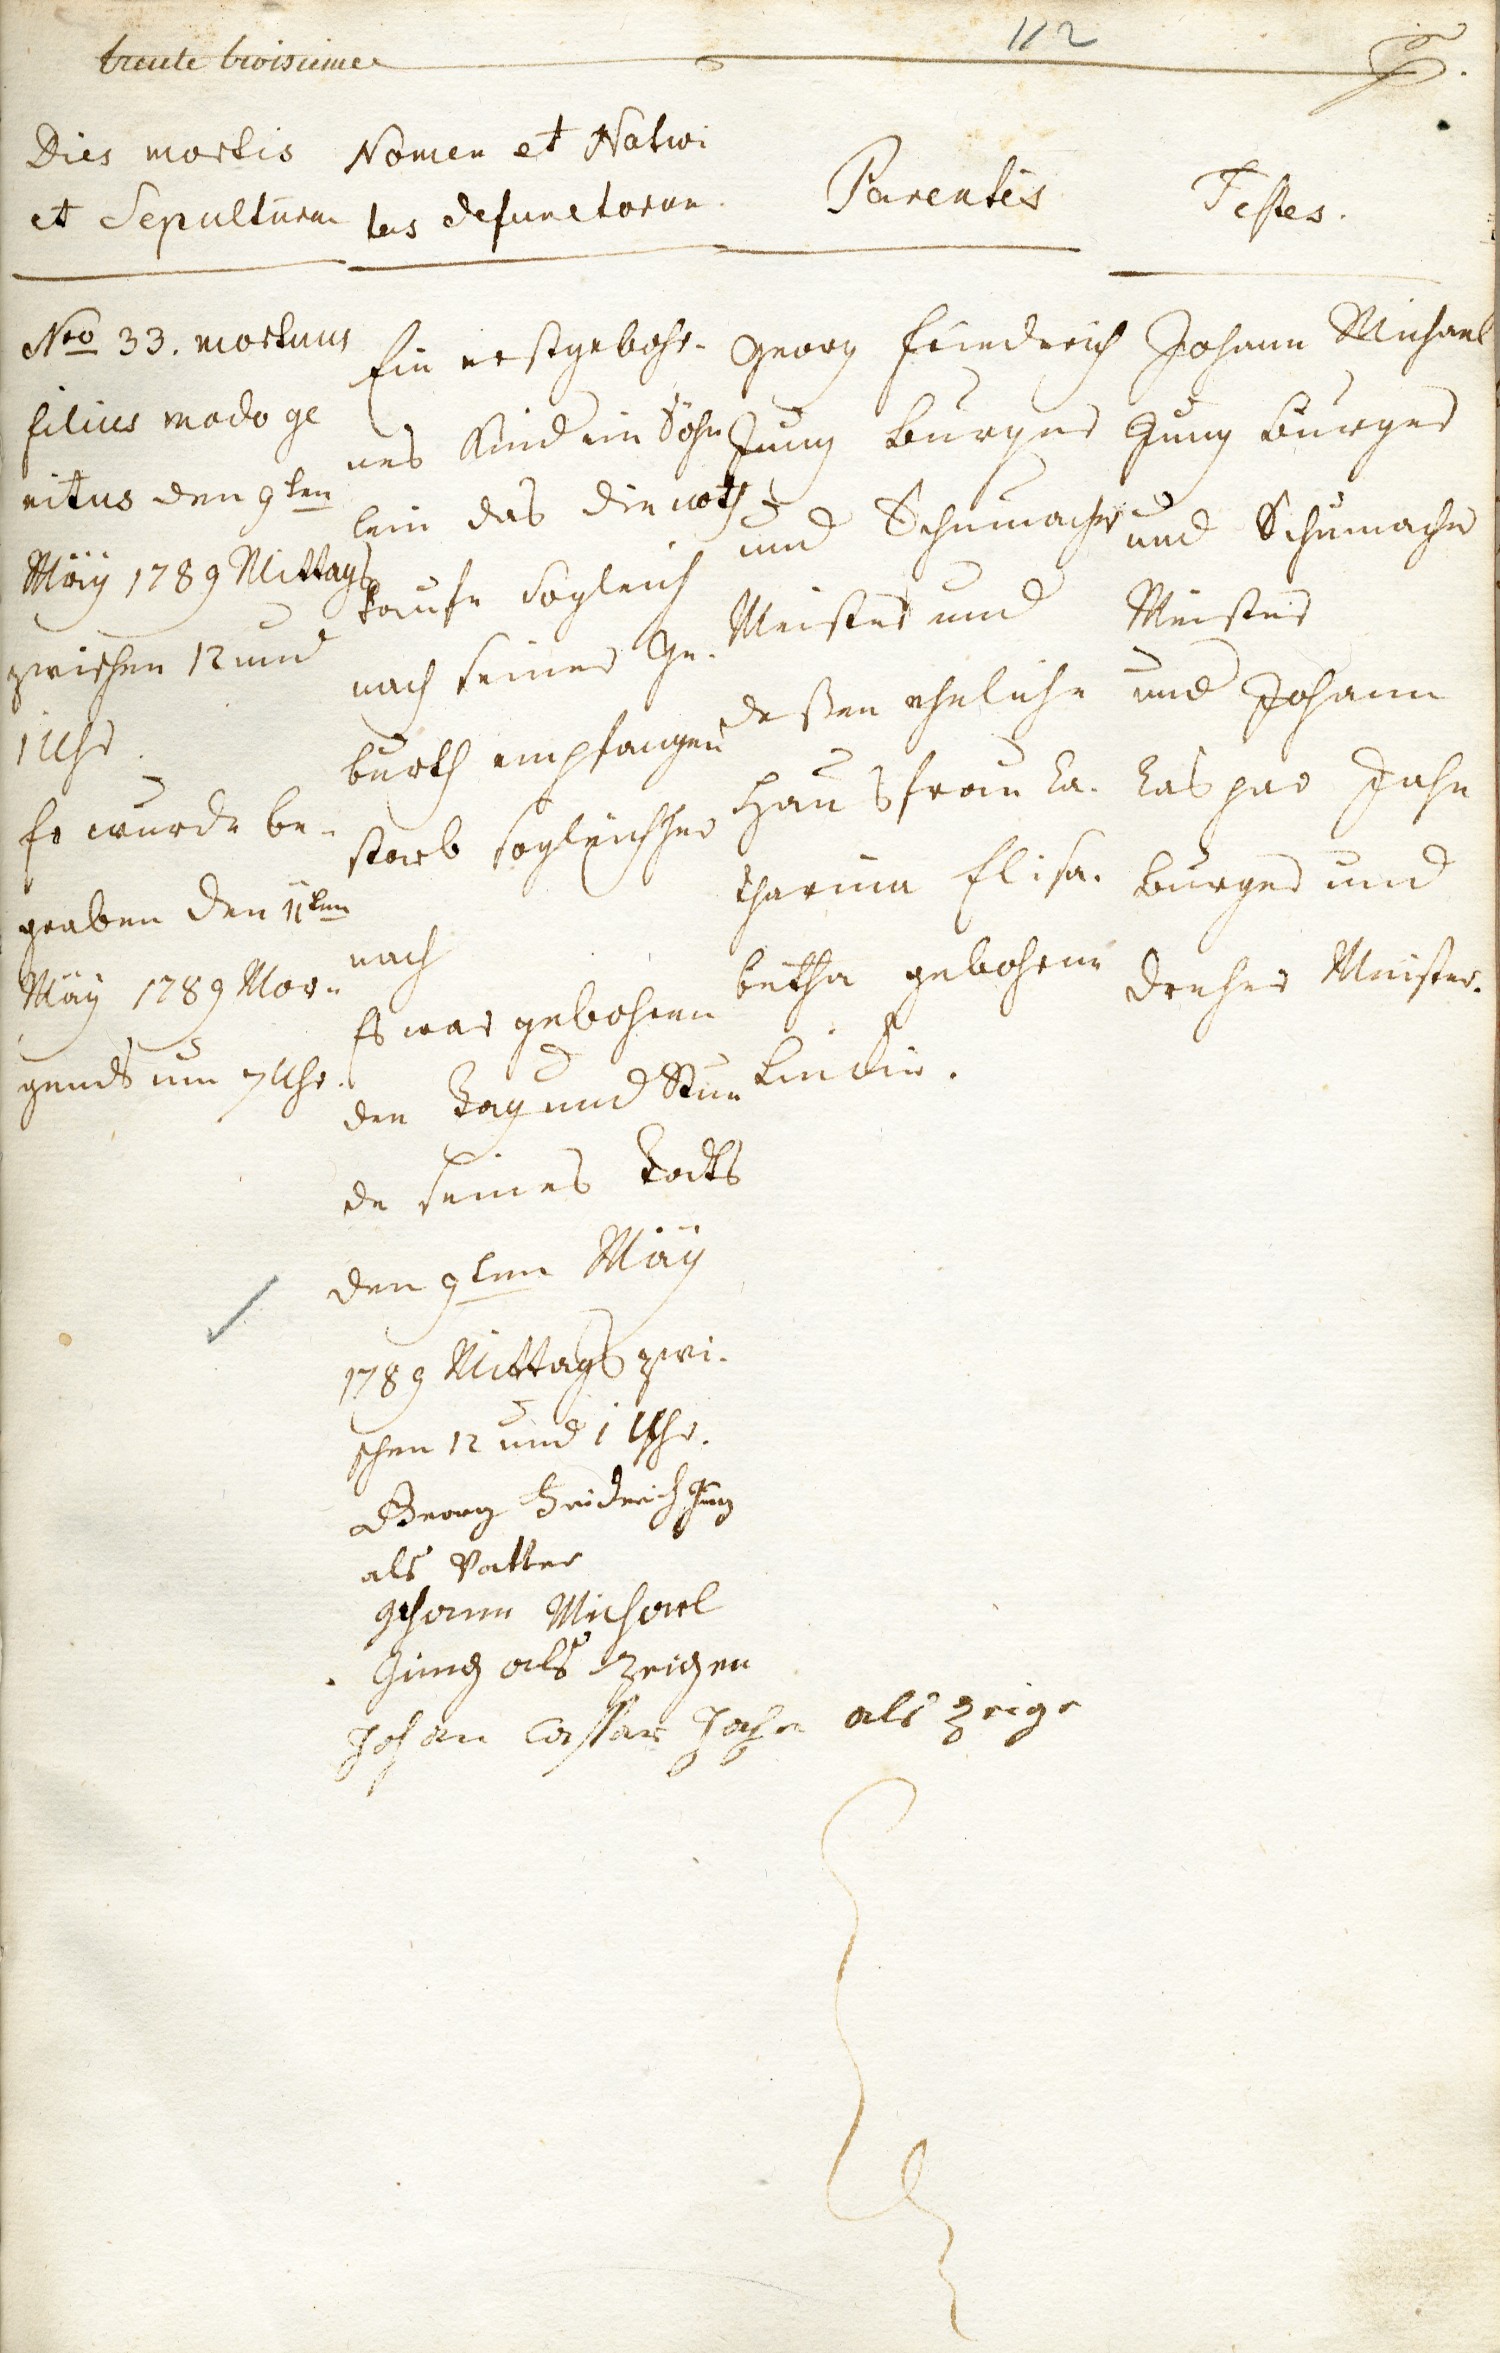 trente troisieme
112
Dies mortis
et Sepulturae
Nomen et Nativi
tas defunctorum.
Parentes
Testes.
Nro 33. mortuus
filius modo ge
nitus den 9ten
Mäy 1789 Mittags
zwischen 12 und
1 Uhr.
Es wurde be-
graben den 11ten
Mäy 1789 Mor-
gends um 7 Uhr.
Ein erstgebohr-
nes Kind ein Söhn
lein das die noth
taufe sogleich
nach seiner Ge-
burth empfangen
starb sogleich her
nach
Es war gebohren
den Tag und Stun
de seines Todts
den 9ten Mäy
1789 Mittags zwi-
schen 12 und 1 Uhr.
Georg Fridrich Jung
als Vatter
Johann Michael
Jung als Zeigen
Johan Casspar Jahn als Zeige
Georg Friedrich
Jung Burger
und Schumacher
Meister und
deßen eheliche
Hausfrau Ca-
tharina Elisa-
betha gebohrne
Lindin.
Johann Michael
Jung Burger
und Schumacher
Meister
und Johann
Caspar Jahn
Burger und
Dreher Meister.